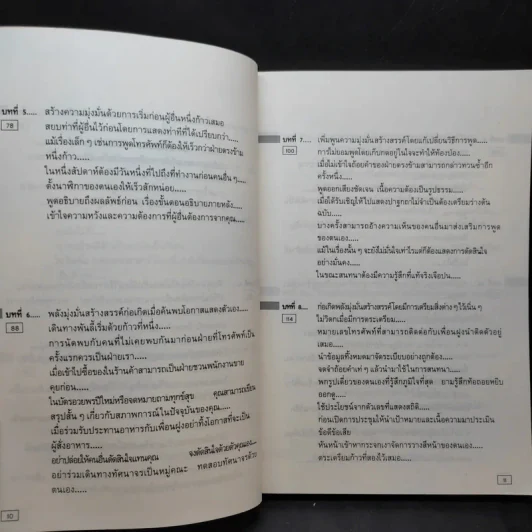 บทที่ 5..... สร้างความมุ่งมั่นด้วยการเริ่มก่อนผู้อื่นหนึ่งก้าวเสมอ
78 สยบท่าที่ผู้อื่นไว้ก่อนโดยการแสดงท่าทีที่ได้เปรียบกว่า.....
แม้เรื่องเล็ก ๆ เช่นการพูดโทรศัพท์ก็ต้องให้เร็วกว่าฝ่ายตรงข้าม
หนึ่งก้าว.....
ในหนึ่งสัปดาห์ต้องมีวันหนึ่งที่ไปถึงที่ทำงานก่อนคนอื่น ๆ.....
ตั้งนาฬิกาของตนเองให้เร็วสักหน่อย.....
พูดอธิบายถึงผลลัพธ์ก่อน เรื่องขั้นตอนอธิบายภายหลัง.....
เข้าใจความหวังและความต้องการที่ผู้อื่นต้องการจากคุณ.....
บทที่ 6..... พลังมุ่งมั่นสร้างสรรค์ก่อเกิดเมื่อค้นพบโอกาสแสดงตัวเอง.....
88 เดินทางพันลี้เริ่มด้วยก้าวที่หนึ่ง.....
การนัดพบกับคนที่ไม่เคยพบกันมาก่อนฝ่ายที่โทรศัพท์เป็น
ครั้งแรกควรเป็นฝ่ายเรา.....
เมื่อเข้าไปซื้อของในร้านค้าสามารถเป็นฝ่ายชวนพนักงานขาย
คุยก่อน.....
ในบัตรอวยพรปีใหม่หรือจดหมายถามทุกข์สุข คุณสามารถเขียน
สรุปสั้น ๆ เกี่ยวกับสภาพการณ์ในปัจจุบันของคุณ.....
เมื่อร่วมรับประทานอาหารกับเพื่อนฝูงอย่าทิ้งโอกาสที่จะเป็น
ผู้สั่งอาหาร.....
อย่าปล่อยให้คนอื่นตัดสินใจแทนคุณ จงตัดสินใจด้วยตัวคุณเอง.....
อย่าร่วมเดินทางทัศนาจรเป็นหมู่คณะ ทดสอบทัศนาจรด้วย
ตนเอง.....
10
บทที่ 7..... เพิ่มพูนความมุ่งมั่นสร้างสรรค์โดยแก้เปลี่ยนวิธีการพูด.....
100 การไม่ยอมพูดโดยเก็บกดอยู่ในใจจะทำให้ท้องป่อง.....
เมื่อไม่เข้าใจถ้อยคำของฝ่ายตรงข้ามสามารถกล่าวทวนซ้ำอีก
ครั้งหนึ่ง.....
พูดออกเสียงชัดเจน เนื้อความต้องเป็นรูปธรรม.....
เมื่อได้รับเชิญให้ไปแสดงปาฐกถาไม่จำเป็นต้องเตรียมร่างต้น
ฉบับ.....
บางครั้งสามารถอ้างความเห็นของคนอื่นมาส่งเสริมการพูด
ของตนเอง.....
แม้ในเรื่องนั้น ๆ จะยังไม่มั่นใจเท่าไรแต่ก็ต้องแสดงการตัดสินใจ
อย่างมั่นคง.....
ในขณะสนทนาต้องมีความรู้สึกที่แท้จริงเจือปน.....
บทที่ 8..... ก่อเกิดพลังมุ่งมั่นสร้างสรรค์โดยมีการเตรียมสิ่งต่าง ๆ ไว้เนิ่น ๆ
114 ไม่วิตกเมื่อมีการตระเตรียม.....
หมายเลขโทรศัพท์ที่สามารถติดต่อกับเพื่อนฝูงนำติดตัวอยู่
เสมอ.....
นำข้อมูลทั้งหมดมาจัดระเบียบอย่างถูกต้อง.....
จดจำถ้อยคำเท่ ๆ แล้วนำมาใช้ในการสนทนา.....
พกรูปเดี่ยวของตนเองที่รู้สึกภูมิใจที่สุด ยามรู้สึกท้อถอยหยิบ
ออกดู.....
ใช้ประโยชน์จากตัวเลขที่แสดงสถิติ.....
ก่อนเปิดการประชุมให้นำเป้าหมายและเนื้อความมาประเมิน
ข้อดีข้อเสีย
หันหน้าเข้าหากระจกเงาจัดการวางสีหน้าของตนเอง.....
ตระเตรียมก้าวที่สองไว้เสมอ.....
11